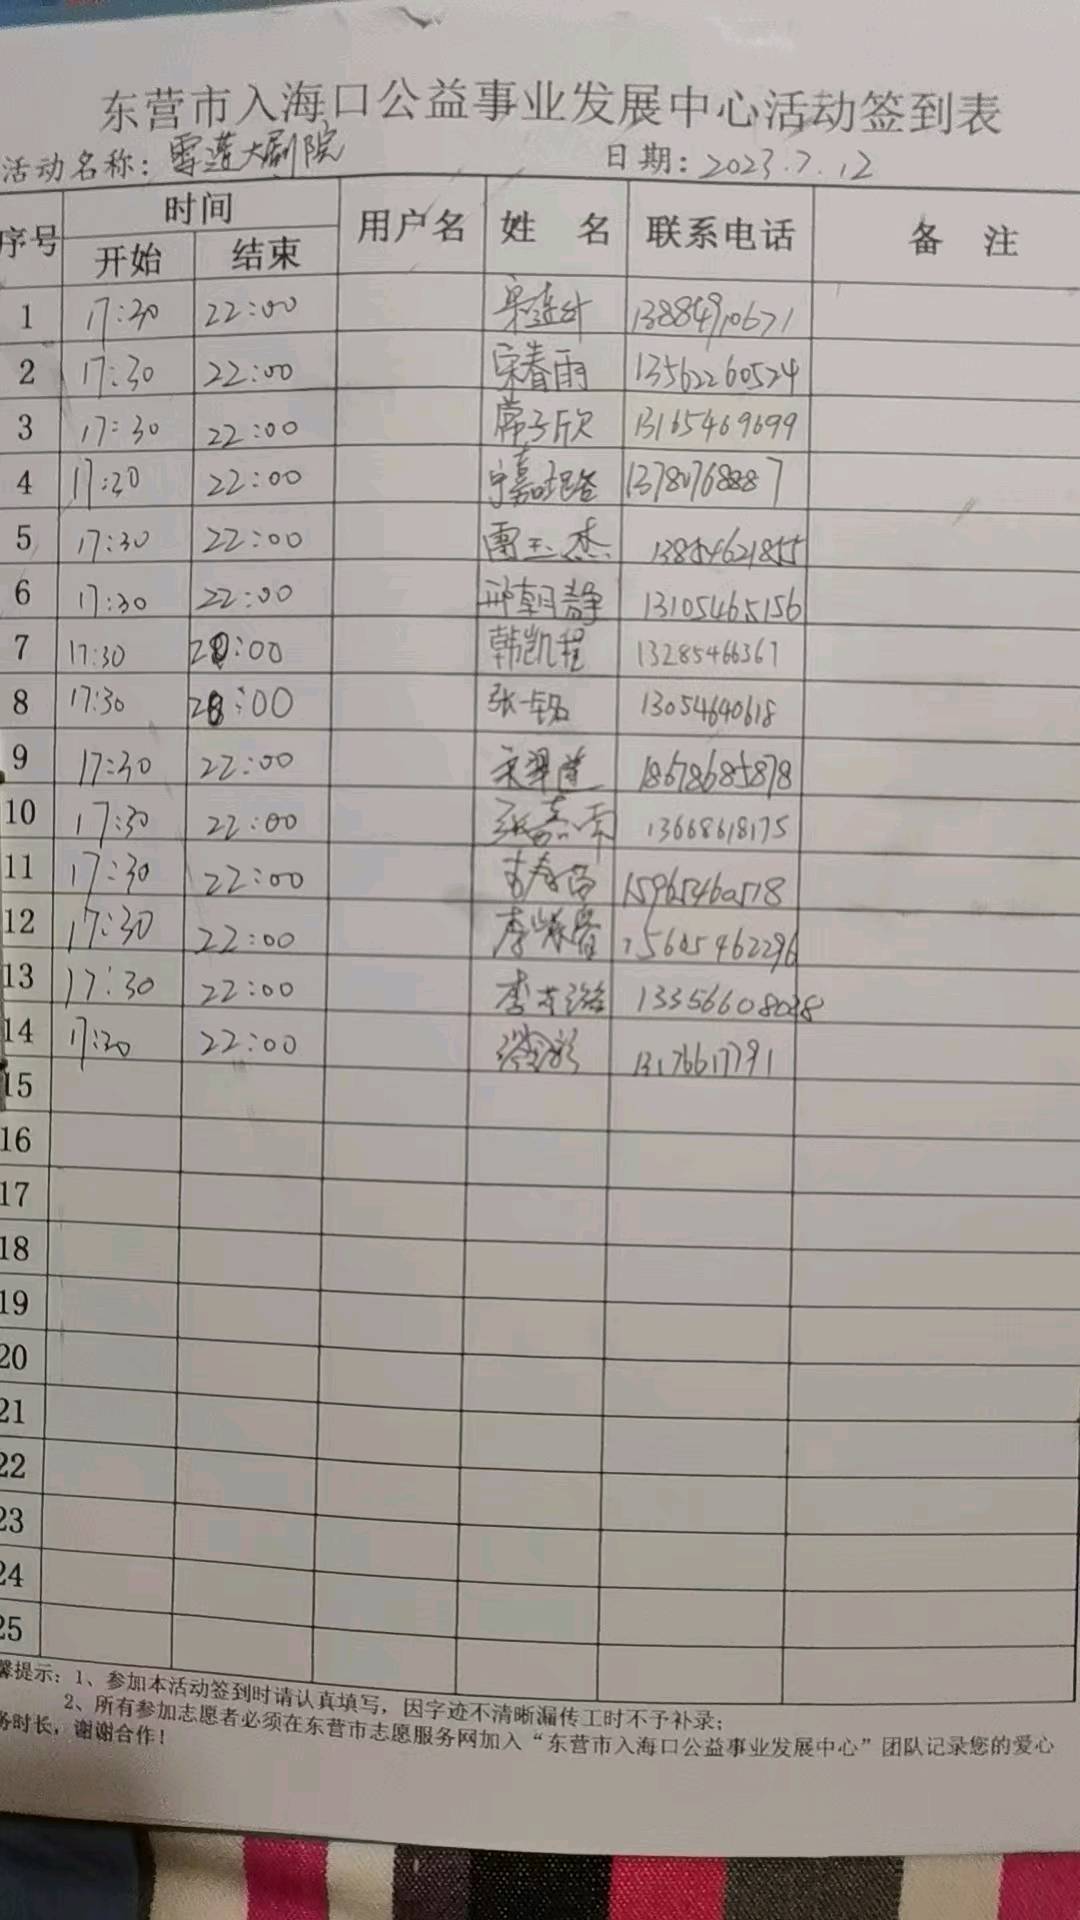 东营市入海口公益事业发展中心活动签到表
活动名称：雪莲大剧院 日期：2023.7.12
序号 时间 用户名 姓 名 联系电话 备 注
开始 结束
1 17:30 22:00 13884910671
2 17:30 22:00 宋春雨 13562260524
3 17:30 22:00 常子欣 13165469699
4 17:30 22:00 13780768887
5 17:30 22:00 雷玉杰 13854621855
6 17:30 22:00 邢朝静 13105465156
7 17:30 :00 韩凯程 13285466367
8 17:30 :00 张一铭 13054640618
9 17:30 22:00 宋翠莲 18678685878
10 17:30 22:00 张嘉 13668618175
11 17:30 22:00 15965460578
12 17:30 22:00 李 15605462296
13 17:30 22:00 李 13356608028
14 17:30 22:00 13176617791
15
16
17
18
19
20
21
22
23
24
25
馨提示：1、参加本活动签到时请认真填写，因字迹不清晰漏传工时不予补录；
2、所有参加志愿者必须在东营市志愿服务网加入“东营市入海口公益事业发展中心”团队记录您的爱心
务时长，谢谢合作！